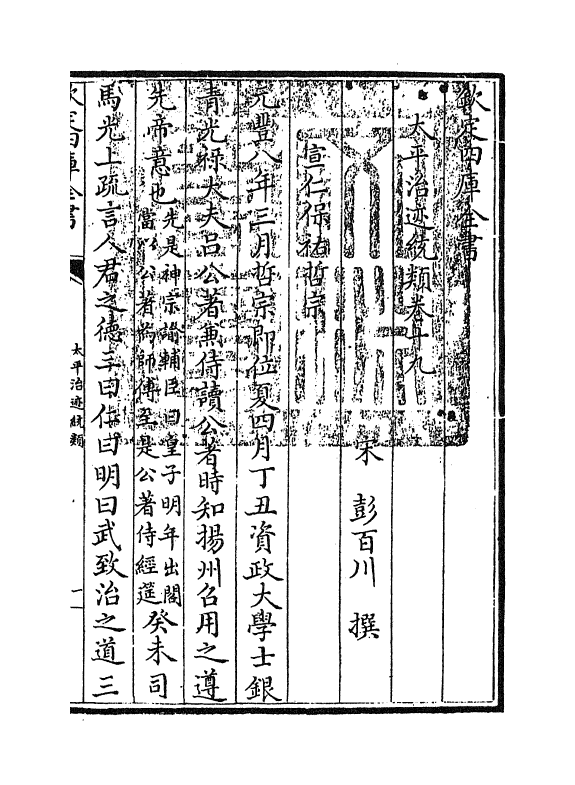 欽定四庫全書
太平治迹統類卷十九
宋 彭百川 撰
宣仁保祐哲宗
元豐八年三月哲宗即位夏四月丁丑資政大學士銀
青光祿大夫呂公著兼侍讀公著時知揚州召用之遵
先帝意也先是神宗諭輔臣曰皇子明年出閣當以公著為師傅至是公著侍經筵癸未司
馬光上疏言人君之德三曰仁曰明曰武致治之道三
欽定四庫全書
太平治迹統類
一